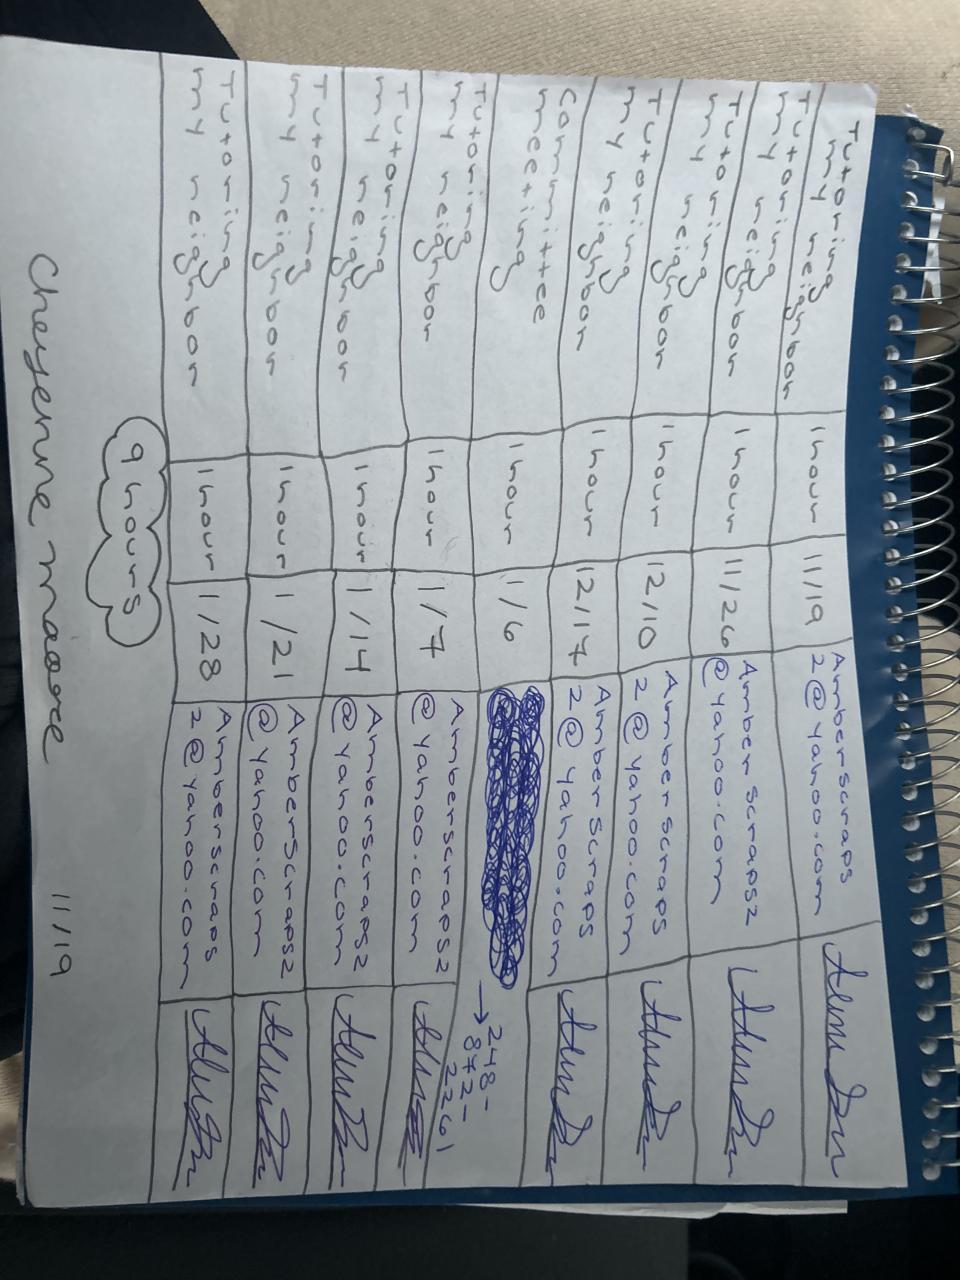 Tutoring
my neighbor
1 hour
11/19
Amberscraps
2@yahoo.com
Tutoring
my neighbor
1 hour
11/26
Amberscraps2
@yahoo.com
Tutoring
my neighbor
1 hour
12/10
Amberscraps
2@yahoo.com
Tutoring
my neighbor
1 hour
12/17
Amberscraps
2@yahoo.com
Committee
meeting
1 hour
1/6
→ 248-
872-
2261
Tutoring
my neighbor
1 hour
1/7
Amberscraps2
@yahoo.com
Tutoring
my neighbor
1 hour
1/14
Amberscraps2
@yahoo.com
Tutoring
my neighbor
1 hour
1/21
Amberscraps2
@yahoo.com
Tutoring
my neighbor
1 hour
1/28
Amberscraps
2@yahoo.com
9 hours
Cheyenne moore 11/19